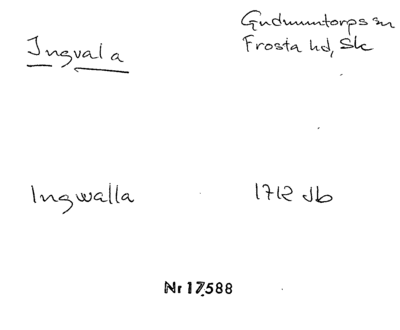 Gudmuntorps sn
Ingvala
Frosta hd, Sk
Ingwalla
1712 Jb
Nr 17588